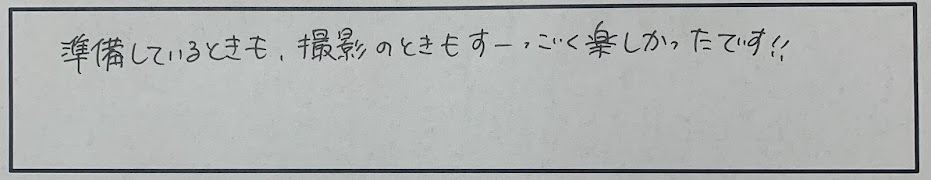 準備しているときも、撮影のときもすーっごく楽しかったです!!